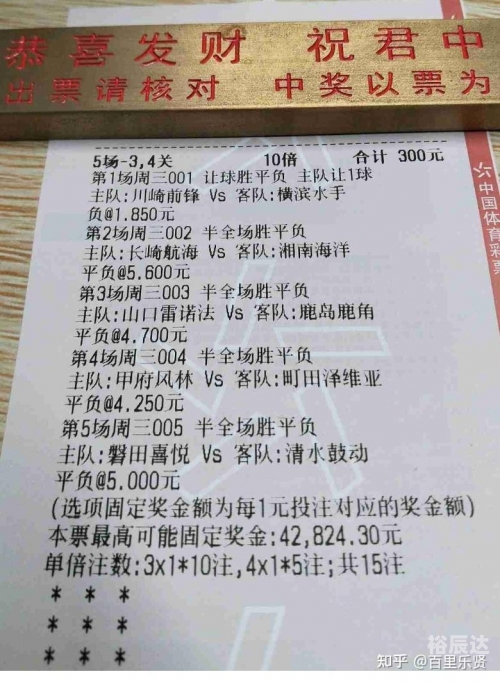 恭喜发财 祝君中
出票请核对 中奖以票为
5场-3,4关 10倍 合计 300元
第1场周三001 让球胜平负 主队让1球
主队:川崎前锋 Vs 客队:横滨水手
负@1.850元
第2场周三002 半全场胜平负
主队:长崎航海 Vs 客队:湘南海洋
平负@5.600元
第3场周三003 半全场胜平负
主队:山口雷诺法 Vs 客队:鹿岛鹿角
平负@4.700元
第4场周三004 半全场胜平负
主队:甲府风林 Vs 客队:町田泽维亚
平负@4.250元
第5场周三005 半全场胜平负
主队:磐田喜悦 Vs 客队:清水鼓动
平负@5.000元
(选项固定奖金额为每1元投注对应的奖金额)
本票最高可能固定奖金:42,824.30元
单倍注数:3x1*10注,4x1*5注;共15注
* * *
* * *
* * *
中国体育彩票
裕辰达
知乎 @百里乐贤